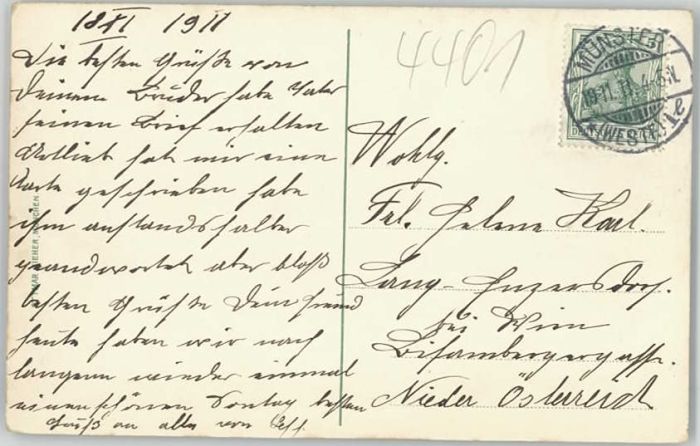 18 XI 1911
Die besten Grüße von
Deinem Bruder habe Vater
seinen Brief erhalten
hat mir eine
Karte geschrieben habe
ihm anstandshalber
geandwortet aber bloß
besten Grüße Dein Freund
heute haben wir nach
langem wieder einmal
einen schönen Sontag besten
Gruß an alle von
4401
MÜNSTER
19.11.11.
(WESTF.)
Wohlg.
Frl. Helene Karl.
Lang-Enzersdorf.
bei Wien
Bisambergergasse.
Nieder Österreich